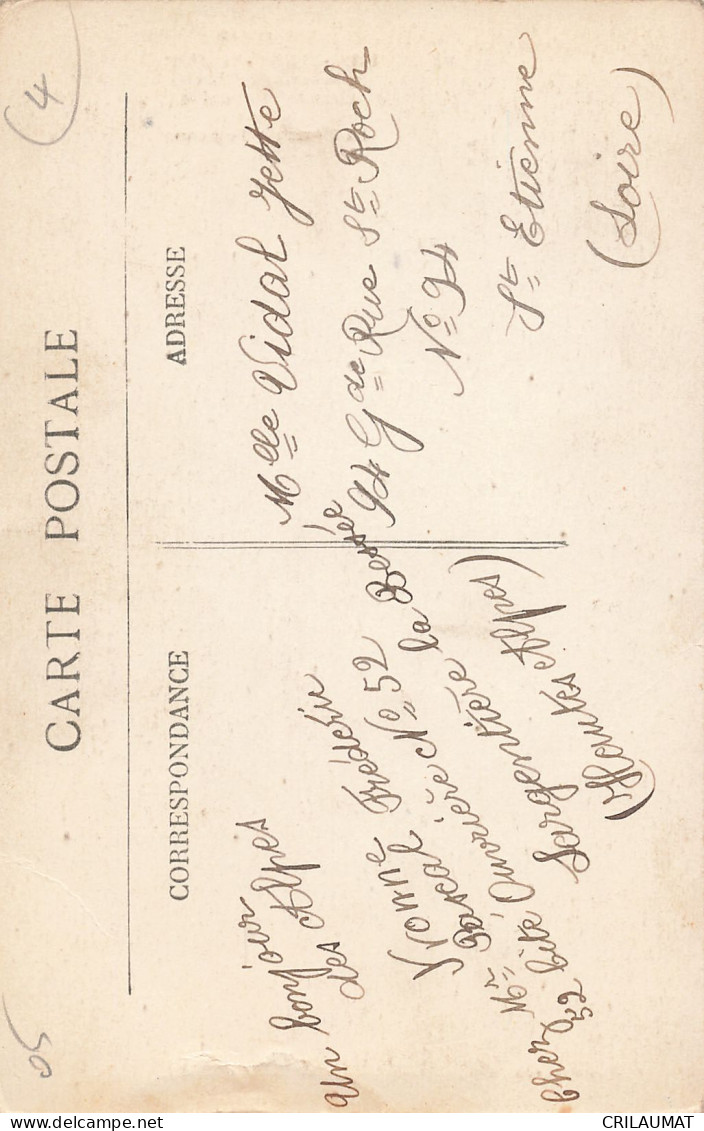 CARTE POSTALE
CORRESPONDANCE
Un bonjour
des Alpes
Yvonne Frédérir
Chez Mr Pascal
52 Cité Ouvrière No 52 la Bessée
Largentière
(Hautes Alpes)
ADRESSE
Mlle Vidal Jette
94 Gde Rue St Roch
No 94
St Etienne
(Loire)
4
05
CRILAUMAT